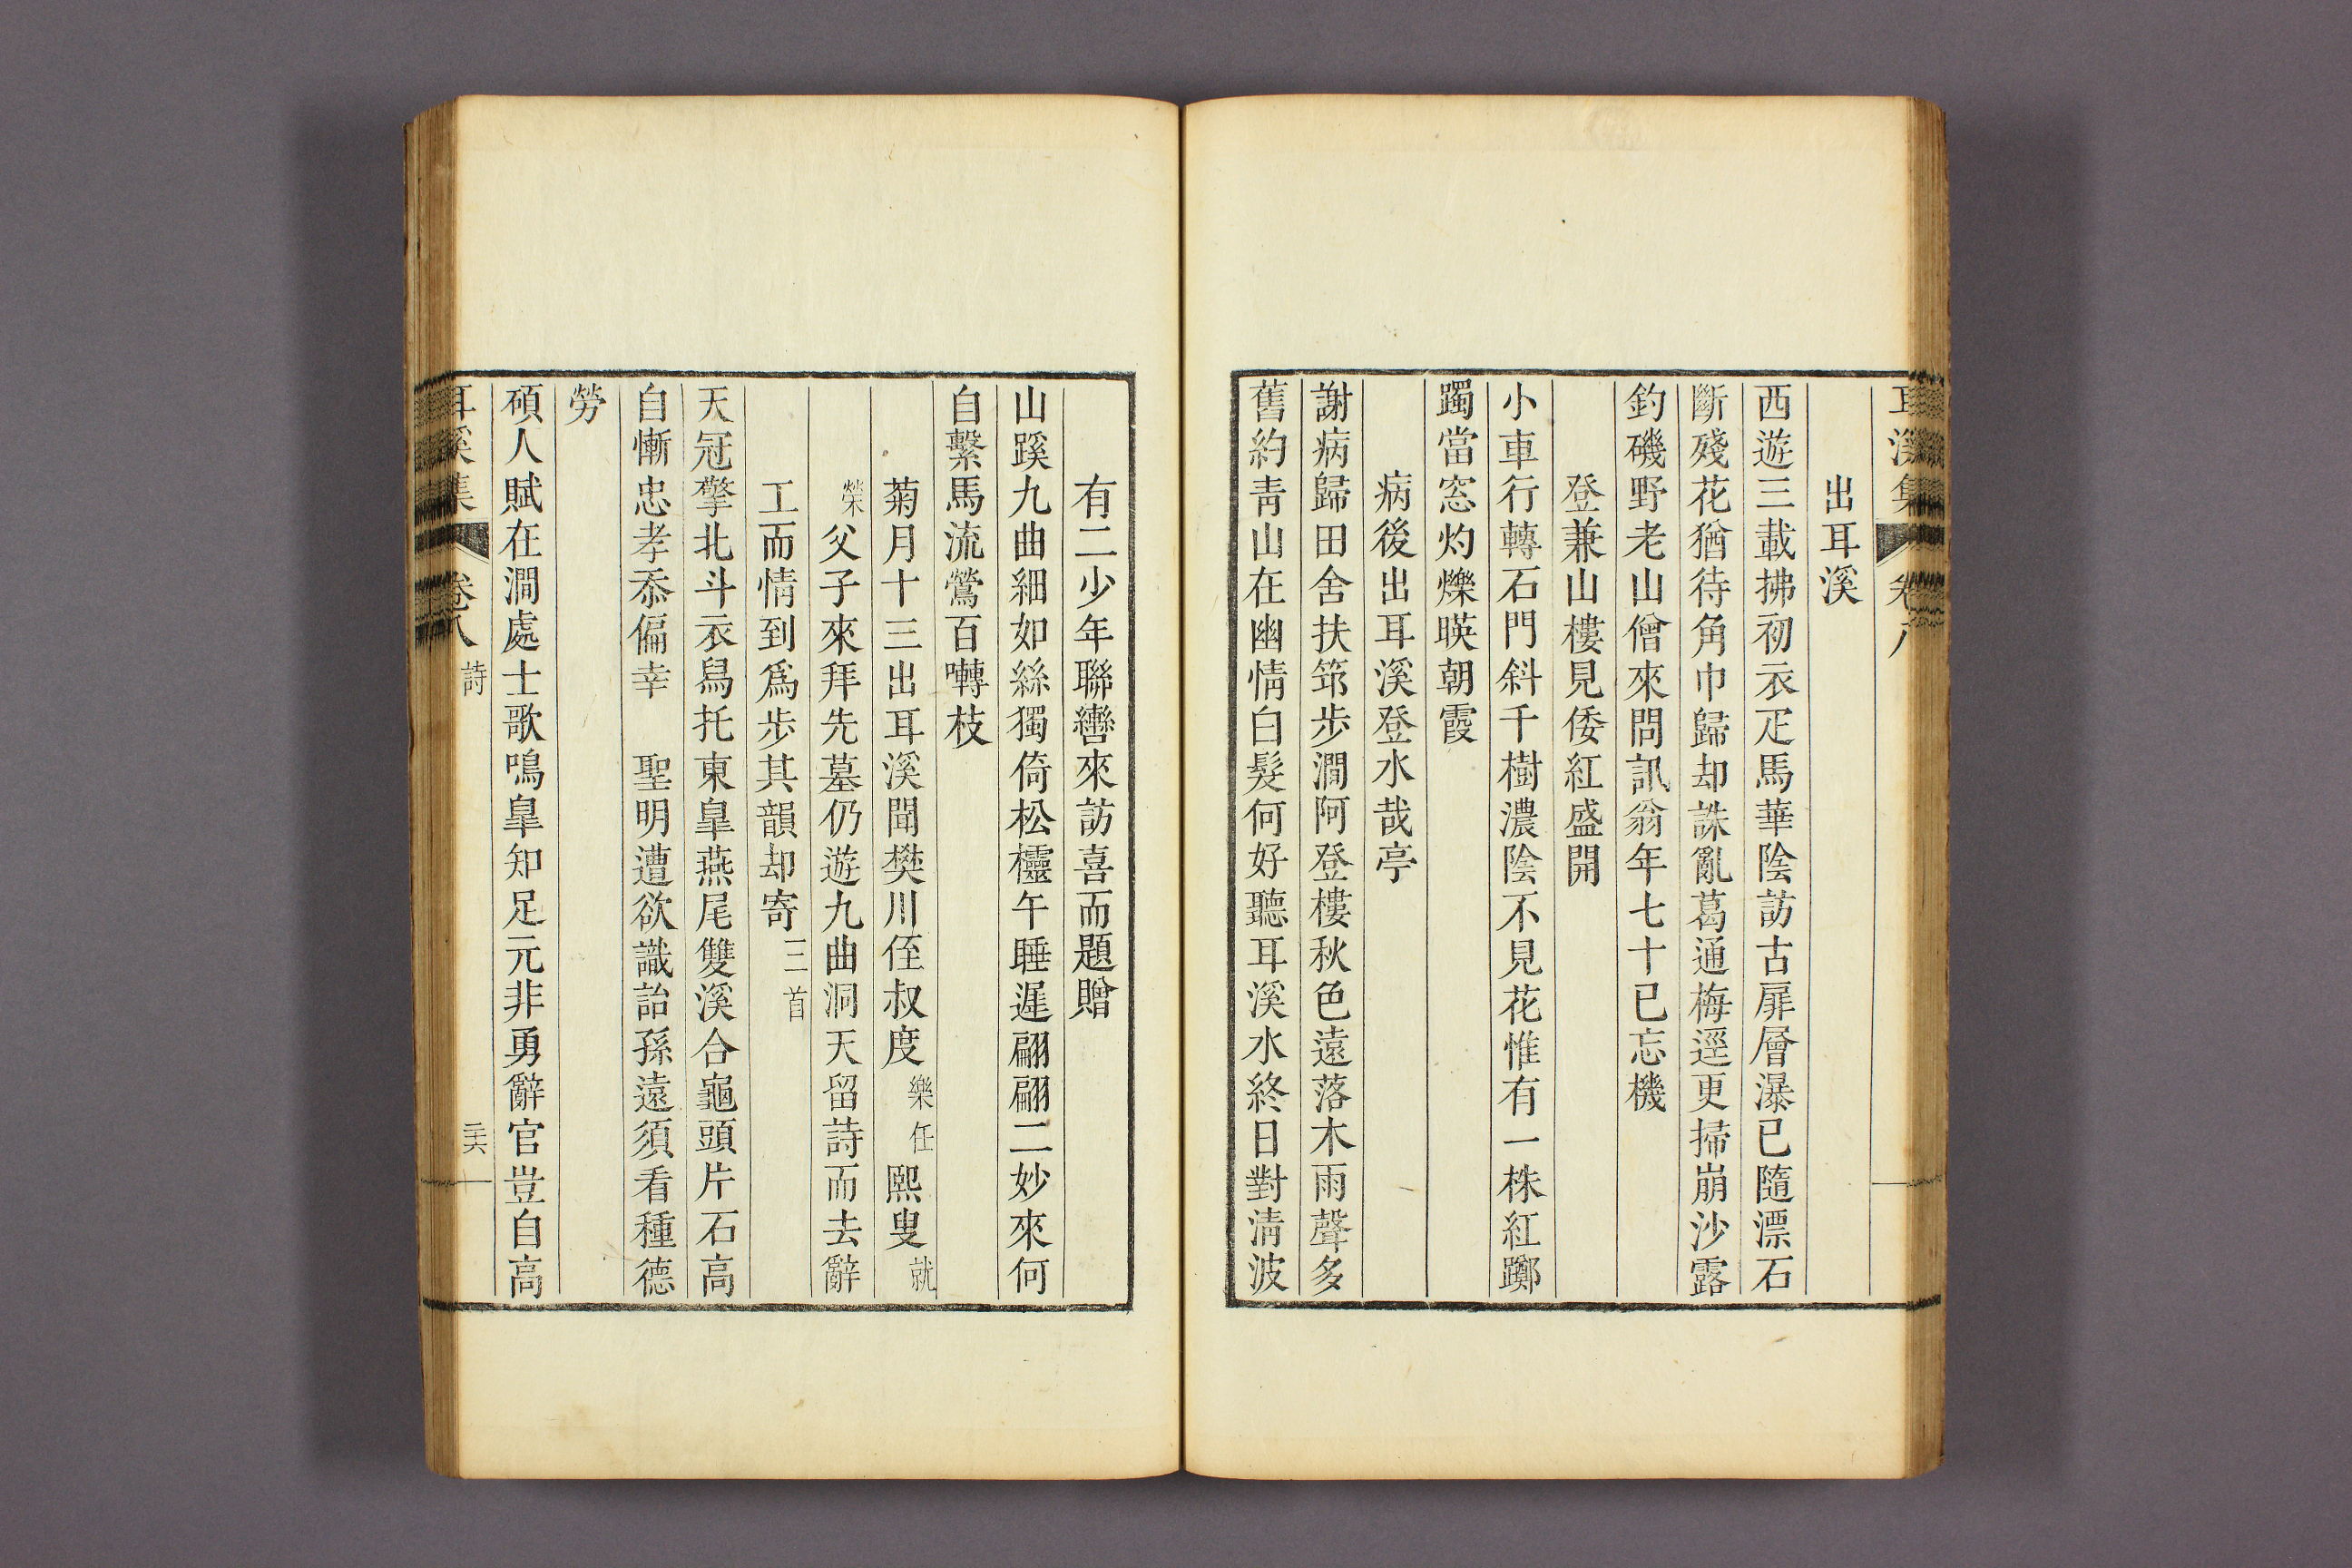 耳溪集 卷八
出耳溪
西遊三載拂初衣疋馬華陰訪古扉層瀑已隨漂石
斷殘花猶待角巾歸却誅亂葛通梅逕更掃崩沙露
釣磯野老山僧來問訊翁年七十已忘機
登兼山樓見倭紅盛開
小車行轉石門斜千樹濃陰不見花惟有一株紅躑
躅當窓灼爍暎朝霞
病後出耳溪登水哉亭
謝病歸田舍扶筇步澗阿登樓秋色遠落木雨聲多
舊約靑山在幽情白髮何好聽耳溪水終日對淸波
有二少年聯轡來訪喜而題贈
山蹊九曲細如絲獨倚松櫺午睡遲翩翩二妙來何
自繫馬流鶯百囀枝
菊月十三出耳溪聞樊川侄叔度樂任熙叟就
榮父子來拜先墓仍遊九曲洞天留詩而去辭
工而情到爲步其韻却寄三首
天冠擎北斗衣舃托東臯燕尾雙溪合龜頭片石高
自慚忠孝忝偏幸 聖明遭欲識詒孫遠須看種德
勞
碩人賦在澗處士歌鳴臯知足元非勇辭官豈自高
耳溪集 卷八 詩 二十六